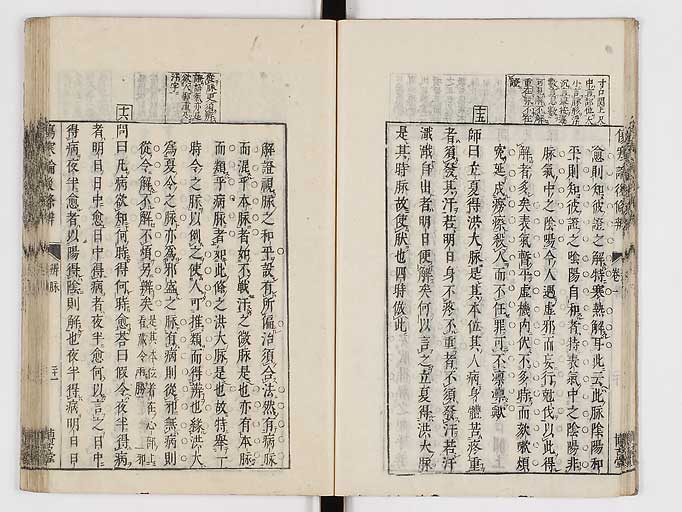 愈則知彼證之解特寒熱解耳此云此脉陰陽和
平則知彼證之陰陽自和者特表氣中之陰陽非
脉氣中之陰陽今人遇虛邪而妄行尅伐以此得
解者多矣表氣暫平虛機內伏不多時而欬嗽煩
寃延成癆瘵殺人而不任罪可不凛凛歟
師曰立夏得洪大脉是其本位其人病身體苦疼重
者須發其汗若明日身不疼不重者不須發汗若汗
濈濈自出者明日便解矣何以言之立夏得洪大脉
是其時脉故使肰也四時倣此
十五
解證視脉之和平設有所偏治須合法然有病脉
而混乎本脉者如不戰汗之微脉是也亦有本脉
而類乎病脉者如此條之洪大脉是也故特舉一
時令之脉以例之使人可推類而得辨也緣洪大
為夏令之脉亦為邪盛之脉有病則從邪無病則
從令解不解不煩另辨矣
問曰凡病欲知何時得何時愈荅曰假令夜半得病
者明日日中愈日中得病者夜半愈何以言之日中
得病夜半愈者以陽得陰則解也夜半得病明日日
十六
傷寒論後條辨
辨脉